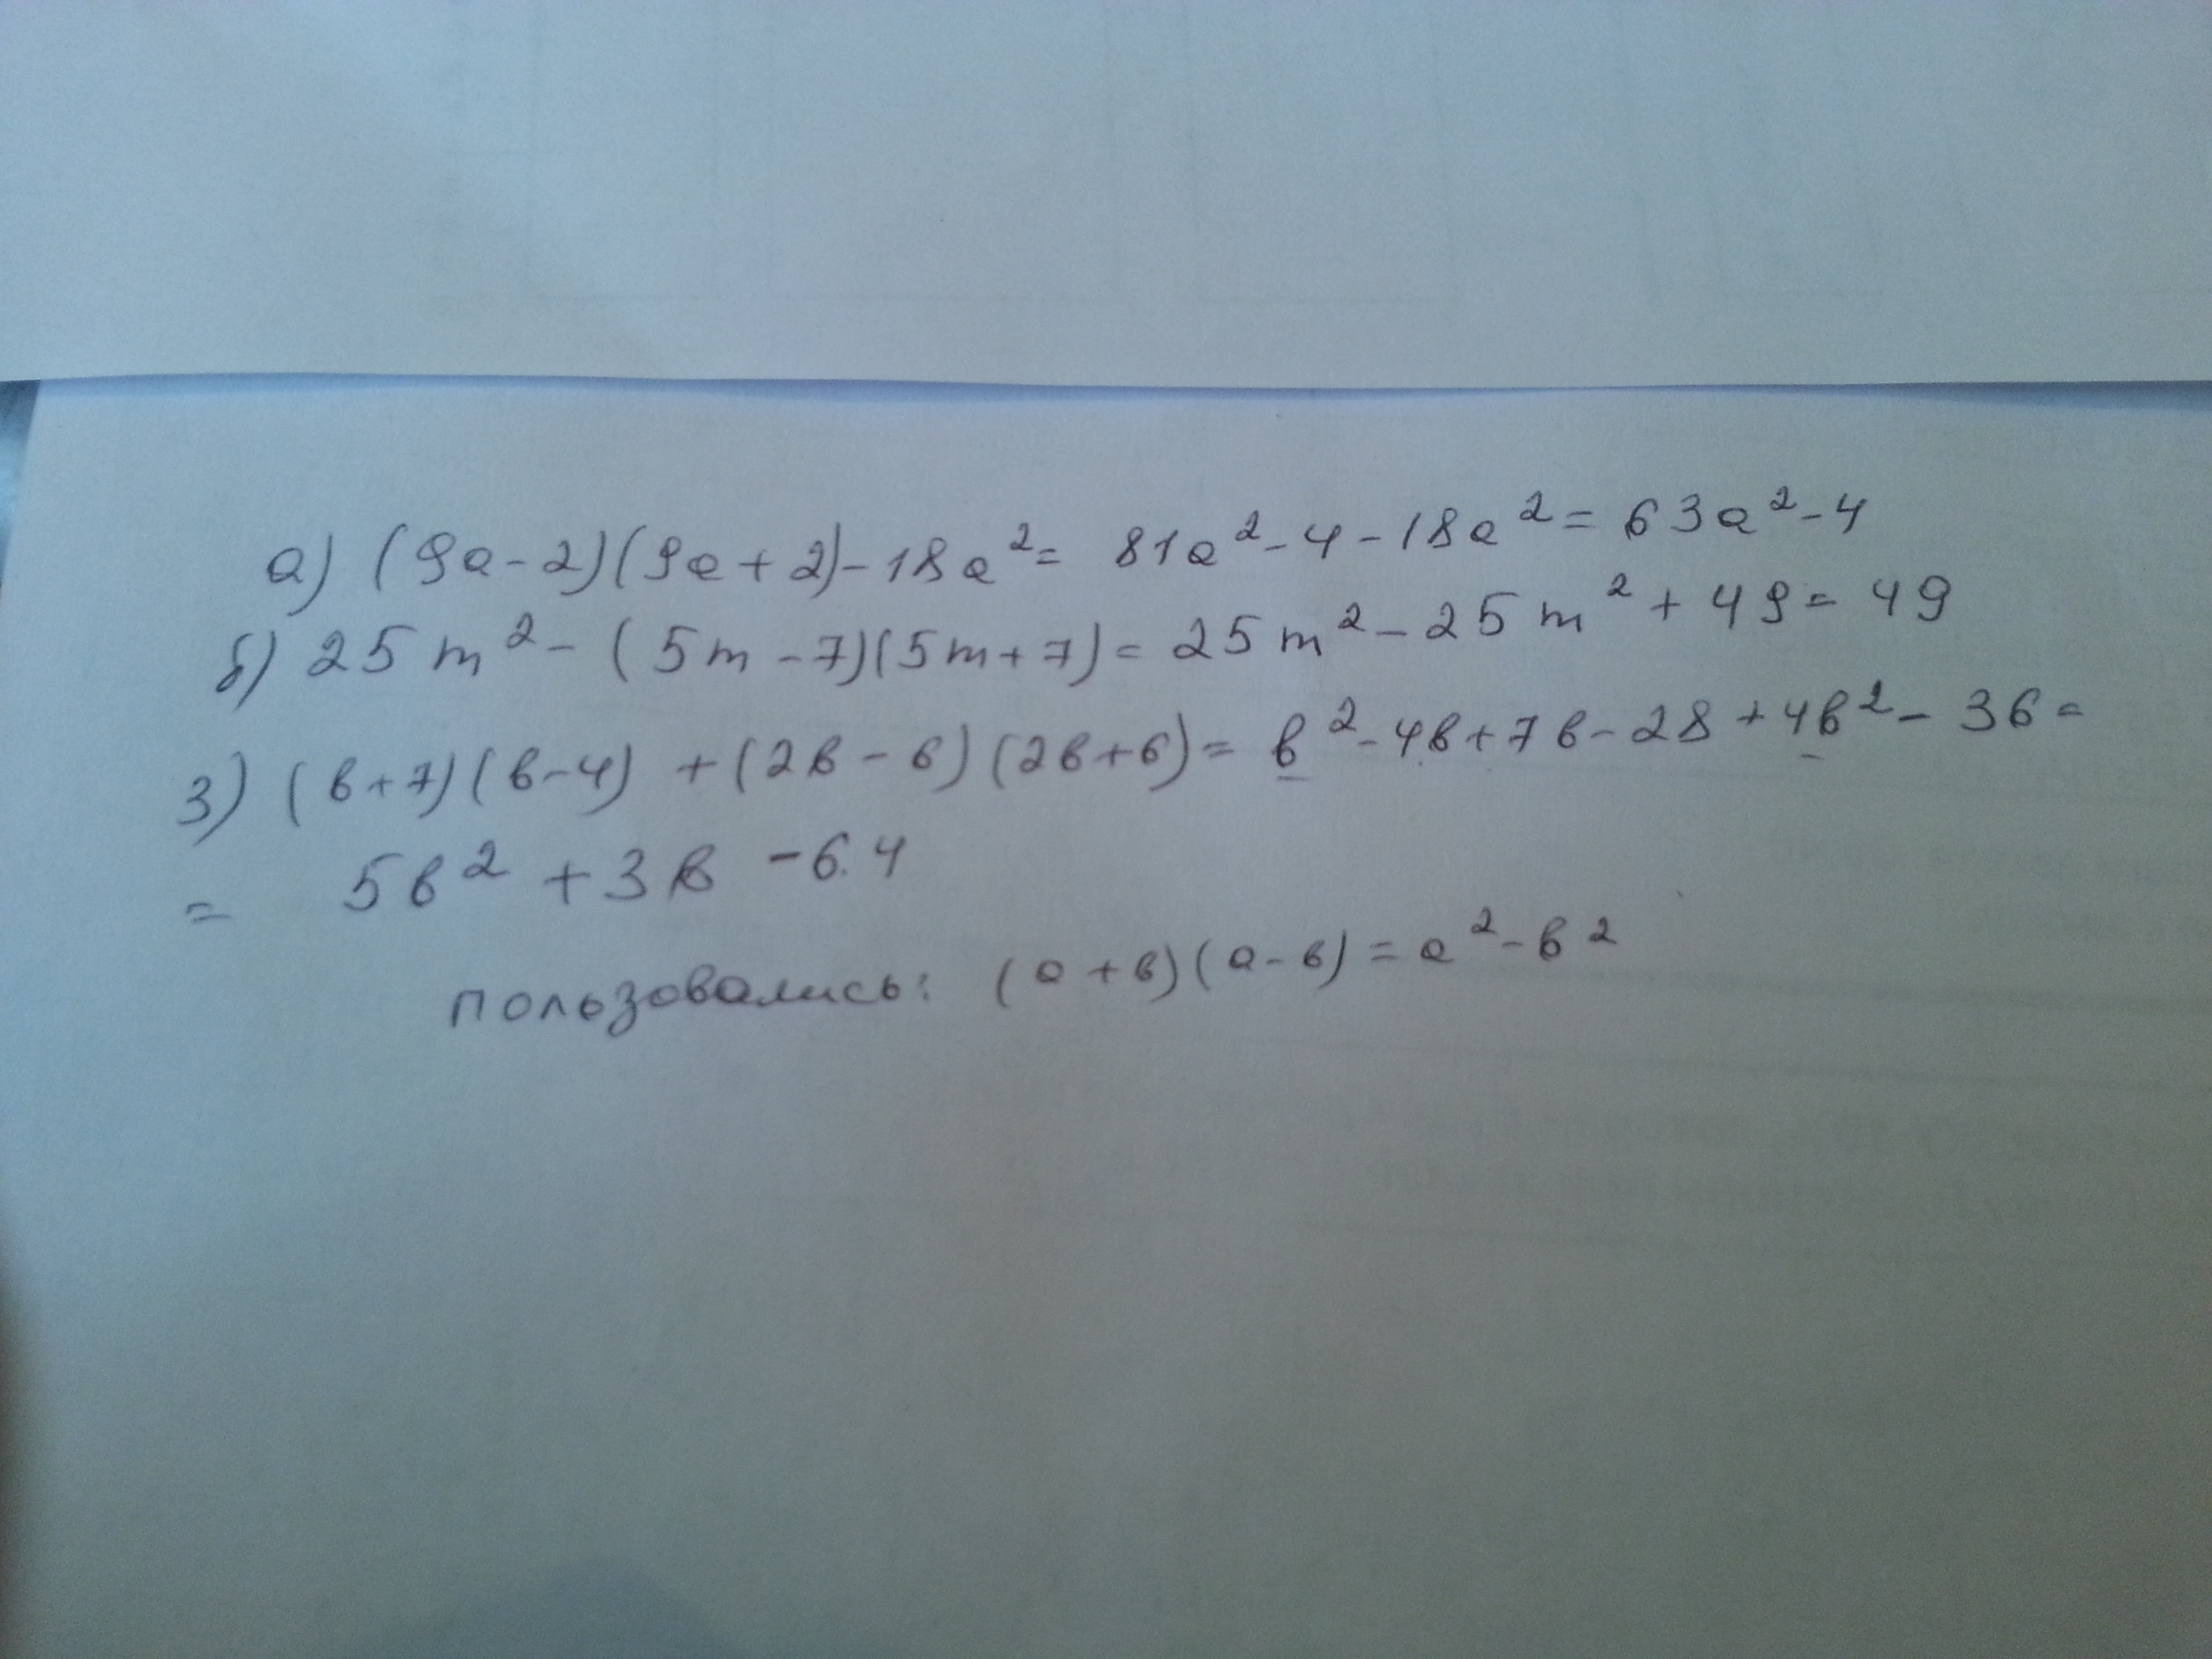 а) (9a-2)(9a+2)-18a²= 81a²-4-18a²=63a²-4
б) 25m²-(5m-7)(5m+7)=25m²-25m²+49=49
3) (в+7)(в-4)+(2в-6)(2в+6)=в²-4в+7в-28+4в²-36=
= 5в²+3в-64
пользовались: (a+в)(a-в)=a²-в²